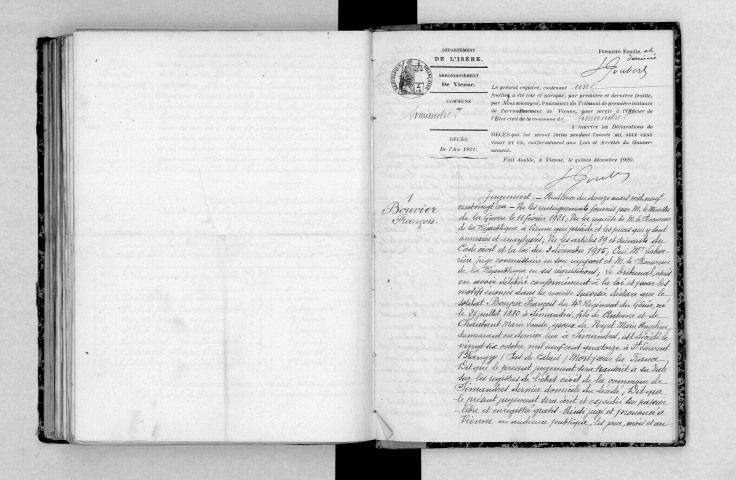 DÉPARTEMENT
DE L'ISÈRE.
ARRONDISSEMENT
De Vienne.
COMMUNE
Simandres
DÉCÈS
De l'An 1921.
Première Feuille et
dernière
J Joubert
Le présent registre, contenant une
feuillet, a été coté et paraphé, par première et dernière feuille,
par Nous soussigné, Président du Tribunal de première instance
de l'arrondissement de Vienne, pour servir à l'Officier de
l'État civil de la commune de Simandres
à inscrire les Déclarations de
DÉCÈS qui lui seront faites pendant l'année MIL NEUF CENT
VINGT ET UN, conformément aux Lois et Arrêtés du Gouver-
nement.
Fait double, à Vienne, le quinze décembre 1920.
J Joubert
1
Bouvier
François.
Jugement. - Audience du douze mars mil neuf
cent vingt un - Vu les renseignements fournis par M. le Ministre
de la Guerre le 11 février 1921; Vu la requête de M. le Procureur
de la République à Vienne qui précède et les pièces qui y sont
annexées et analysées; Vu les articles 89 et suivants du
Code civil et la loi du 3 décembre 1915; Oui Mr
juge commissaire en son rapport et M. le Procureur
de la République en ses réquisitions; Le Tribunal, après
en avoir délibéré conformément à la loi et pour les
motifs énoncés dans la requête susvisée déclare que le
soldat Bouvier François du 4e Régiment du Génie, né
le 27 juillet 1880 à Simandres, fils de Antoine et de
Marie, époux de Marie
demeurant en dernier lieu à Simandres, est décédé le
vingt six octobre mil neuf cent quatorze à St Laurent
Blangy (Pas de Calais) Mort pour la France -
Dit que le présent jugement sera transcrit à sa date
sur les registres de l'état civil de la commune de
Simandres dernier domicile du décédé; Dit que
le présent jugement sera écrit et expédié sur papier
libre et enregistré gratis. Ainsi jugé et prononcé à
Vienne en audience publique, les jour, mois et an